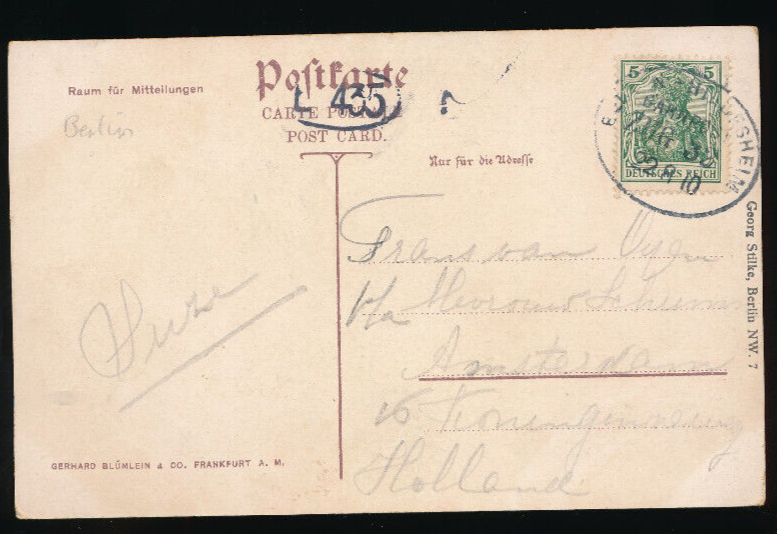 Postkarte
435
CARTE POSTALE
POST CARD.
Raum für Mitteilungen
Berlin
Nur für die Adresse
5 5
DEUTSCHES REICH
BAHNPOST
ZUG
22 8 10
Georg Stilke, Berlin NW. 7
Frans van
p/a Mevrouw
Amsterdam
16 Koninginneweg
Holland
GERHARD BLÜMLEIN & CO. FRANKFURT A. M.